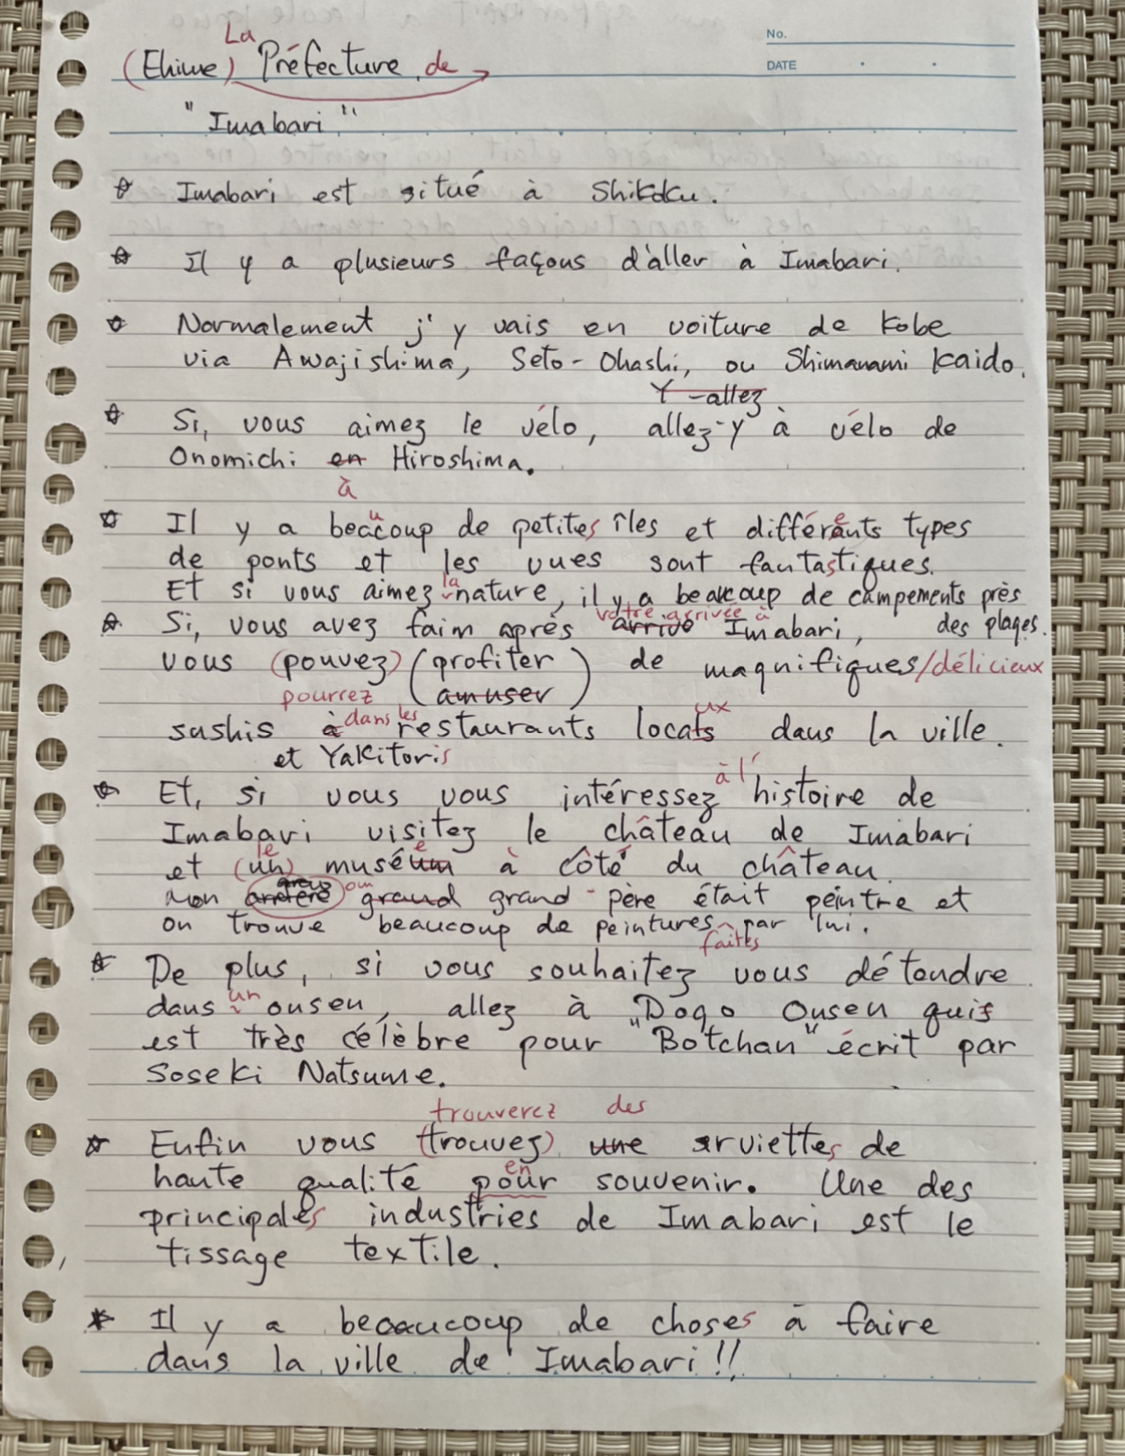 No.
DATE
La
(Ehime) Préfecture de
"Imabari"
☆ Imabari est situé à Shikoku.
☆ Il y a plusieurs façons d'aller à Imabari.
☆ Normalement j'y vais en voiture de Kobe
via Awajishima, Seto-Ohashi, ou Shimanami Kaido.
Y-allez
☆ Si, vous aimez le vélo, allez-y à vélo de
Onomichi en Hiroshima.
à
☆ Il y a beaucoup de petites îles et différents types
de ponts et les vues sont fantastiques.
la
Et si vous aimez nature, il y a beaucoup de campements près
des plages.
votre arrivée à
☆ Si, vous avez faim après arrivé Imabari,
vous (pouvez) (profiter) de magnifiques/délicieux
pourrez (amuser)
dans les ux
sushis à restaurants locats dans la ville.
et Yakitoris
à l'
☆ Et, si vous vous intéressez histoire de
Imabari visitez le château de Imabari
le e
et (un) muséum à côté du château.
mon arrière grand grand-père était peintre et
on trouve beaucoup de peintures par lui.
faites
☆ De plus, si vous souhaitez vous détendre
un
dans onsen, allez à Dogo Onsen qui
est très célèbre pour "Botchan" écrit par
Soseki Natsume.
trouverez des
☆ Enfin vous (trouvez) une serviettes de
en
haute qualité pour souvenir. Une des
principales industries de Imabari est le
tissage textile.
☆ Il y a beaucoup de choses à faire
dans la ville de Imabari!!